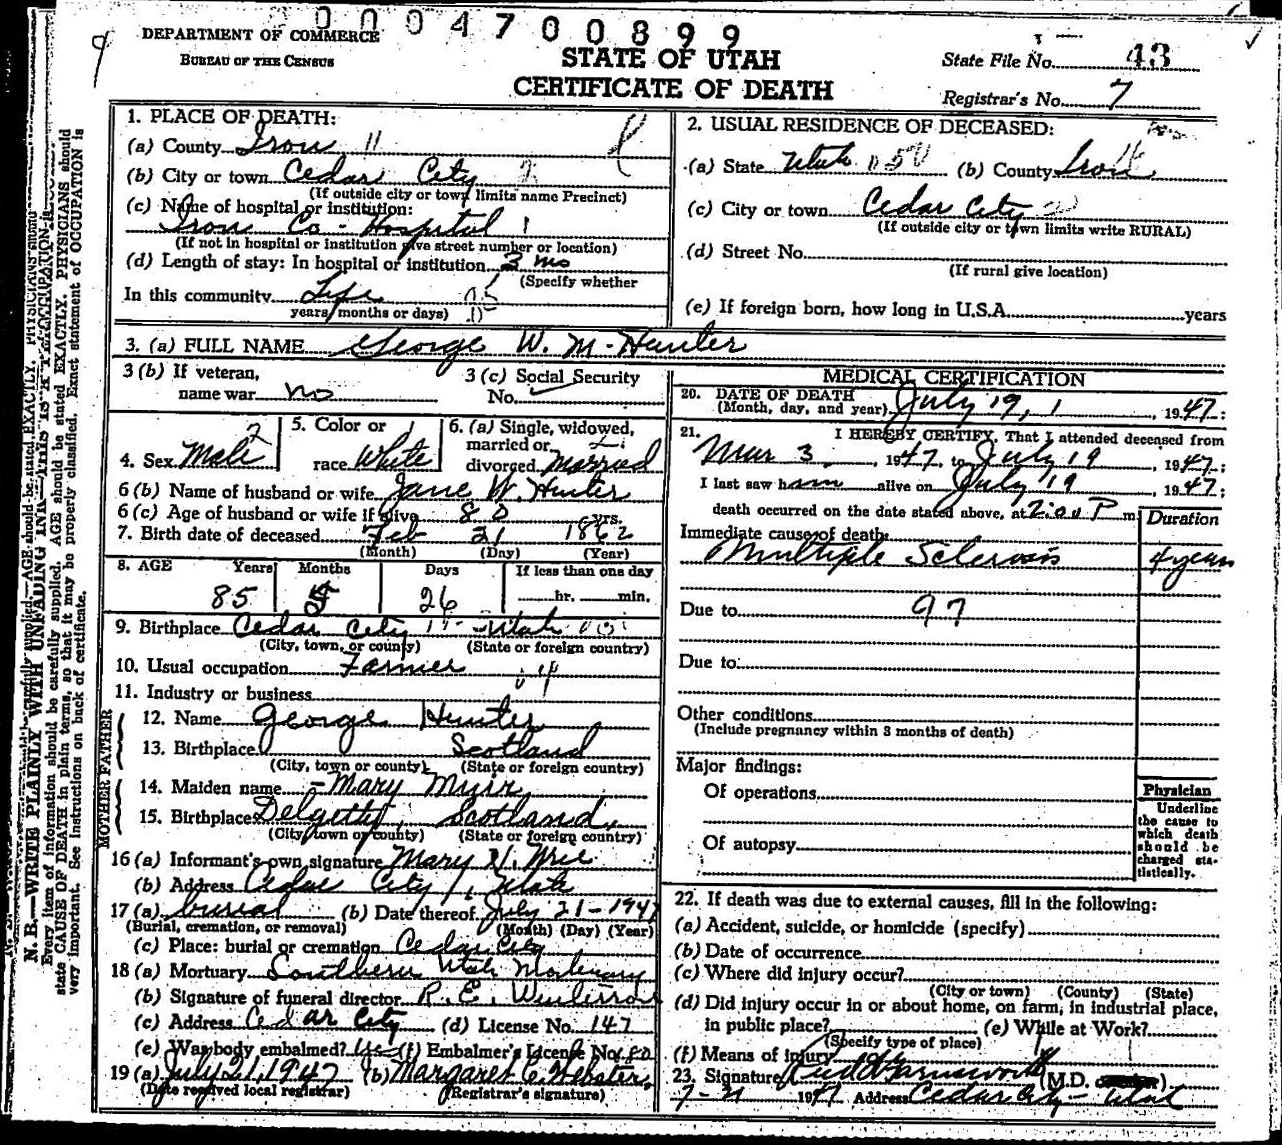 0004700899
DEPARTMENT OF COMMERCE
BUREAU OF THE CENSUS
STATE OF UTAH
CERTIFICATE OF DEATH
State File No. 43
Registrar's No. 7
1. PLACE OF DEATH:
(a) County Iron 11
(b) City or town Cedar City 2
(If outside city or town limits name Precinct)
(c) Name of hospital or institution:
Iron Co. Hospital 1
(If not in hospital or institution give street number or location)
(d) Length of stay: In hospital or institution 3 mo
(Specify whether
In this community Life
years, months or days)
2. USUAL RESIDENCE OF DECEASED:
(a) State Utah (b) County Iron
(c) City or town Cedar City
(If outside city or town limits write RURAL)
(d) Street No.
(If rural give location)
(e) If foreign born, how long in U.S.A. years
3. (a) FULL NAME George W. M. Hunter
3 (b) If veteran,
name war no
3 (c) Social Security
No.
4. Sex Male 2
5. Color or 1
race White
6. (a) Single, widowed,
married or
divorced Married
6 (b) Name of husband or wife Jane W. Hunter
6 (c) Age of husband or wife if alive 80 yrs.
7. Birth date of deceased Feb 21 1862
(Month) (Day) (Year)
8. AGE Years Months Days If less than one day
85 26 hr. min.
9. Birthplace Cedar City Utah
(City, town, or county) (State or foreign country)
10. Usual occupation Farmer
11. Industry or business
FATHER
12. Name George Hunter
13. Birthplace Scotland
(City, town or county) (State or foreign country)
MOTHER
14. Maiden name Mary Muir
15. Birthplace Delgetty, Scotland
(City, town or county) (State or foreign country)
16 (a) Informant's own signature Mary H.
(b) Address Cedar City, Utah
17 (a) burial (b) Date thereof July 21-1947
(Burial, cremation, or removal) (Month) (Day) (Year)
(c) Place: burial or cremation Cedar City
18 (a) Mortuary Southern Utah Mortuary
(b) Signature of funeral director R. E.
(c) Address Cedar City (d) License No. 147
(e) Was body embalmed? Yes (f) Embalmer's License No.
19 (a) July 21, 1947 (b) Margaret C. Webster
(Date received local registrar) (Registrar's signature)
MEDICAL CERTIFICATION
20. DATE OF DEATH
(Month, day, and year) July 19, 1947;
21. I HEREBY CERTIFY, That I attended deceased from
Mar 3, 1947, to July 19, 1947;
I last saw him alive on July 19, 1947;
death occurred on the date stated above, at 2:00 P m.
Duration
Immediate cause of death
Multiple Sclerosis 4 years
Due to 97
Due to:
Other conditions
(Include pregnancy within 3 months of death)
Major findings:
Of operations
Of autopsy
Physician
Underline
the cause to
which death
should be
charged sta-
tistically.
22. If death was due to external causes, fill in the following:
(a) Accident, suicide, or homicide (specify)
(b) Date of occurrence
(c) Where did injury occur?
(City or town) (County) (State)
(d) Did injury occur in or about home, on farm, in industrial place,
in public place? (e) While at Work?
(Specify type of place)
(f) Means of injury
23. Signature Farnsworth (M.D. )
7-21 1947 Address Cedar City - Utah
N. B.—WRITE PLAINLY WITH UNFADING INK—THIS IS A
Every item of information should be carefully supplied. AGE should be stated EXACTLY. PHYSICIANS should
state CAUSE OF DEATH in plain terms, so that it may be properly classified. Exact statement of OCCUPATION is
very important. See instructions on back of certificate.